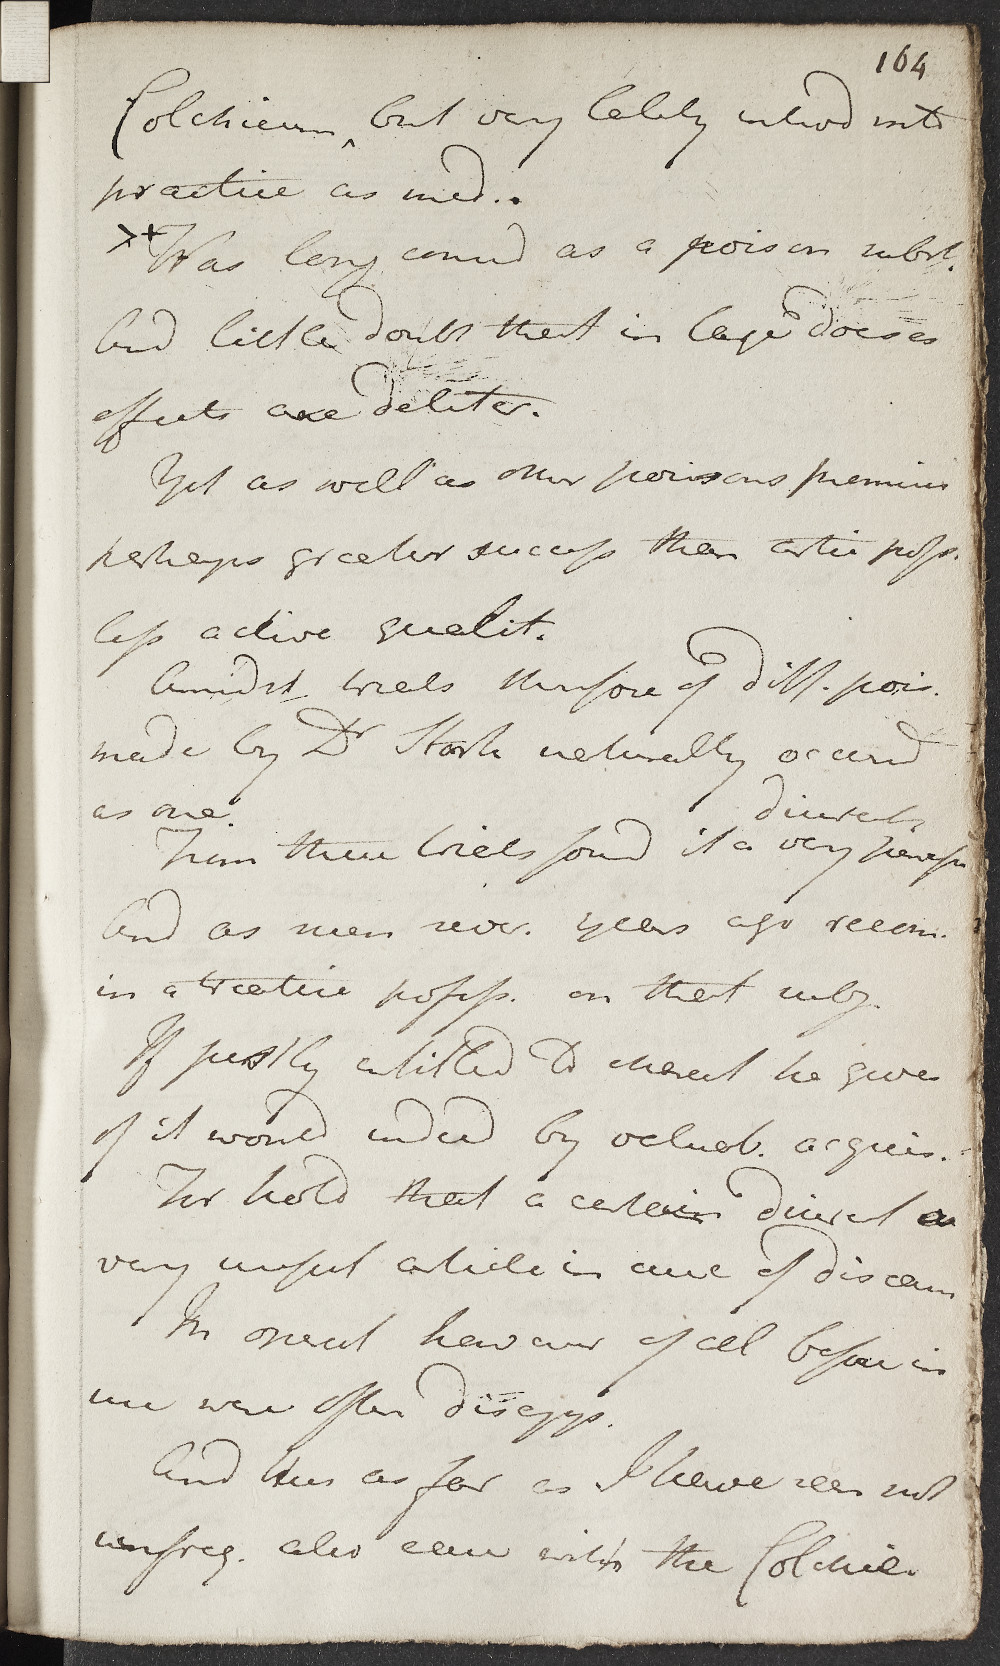 164
Colchicum ‸ but very lately introd into
practice as med..
×+ Was long consid as a poison subst.
And little doubt that in large doeses
effects are deleter.
Yet as well as other poisons
perhaps greater success than artic poss.
less active qualit.
Amidst trials therefore of diff. pois.
made by Dr Stork naturally occurd
as one. diuret.
From these trials found it a very powerfu
And as such sever. years ago recom.
in a treatise profess. on that subj.
If justly entitled to charact he gives
of it would indeed be valuab. acquis.
For hold that a certain diuret a
very useful article in cure of diseases
In effect however of all before in
use were often disapp.
And this as far as I have seen not
unfreq. also case with the Colchic.